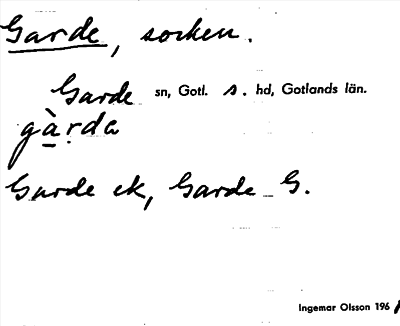 Garde, socken.
Garde sn, Gotl. s. hd, Gotlands län.
gàrda
Garde ek, Garde G.
Ingemar Olsson 196